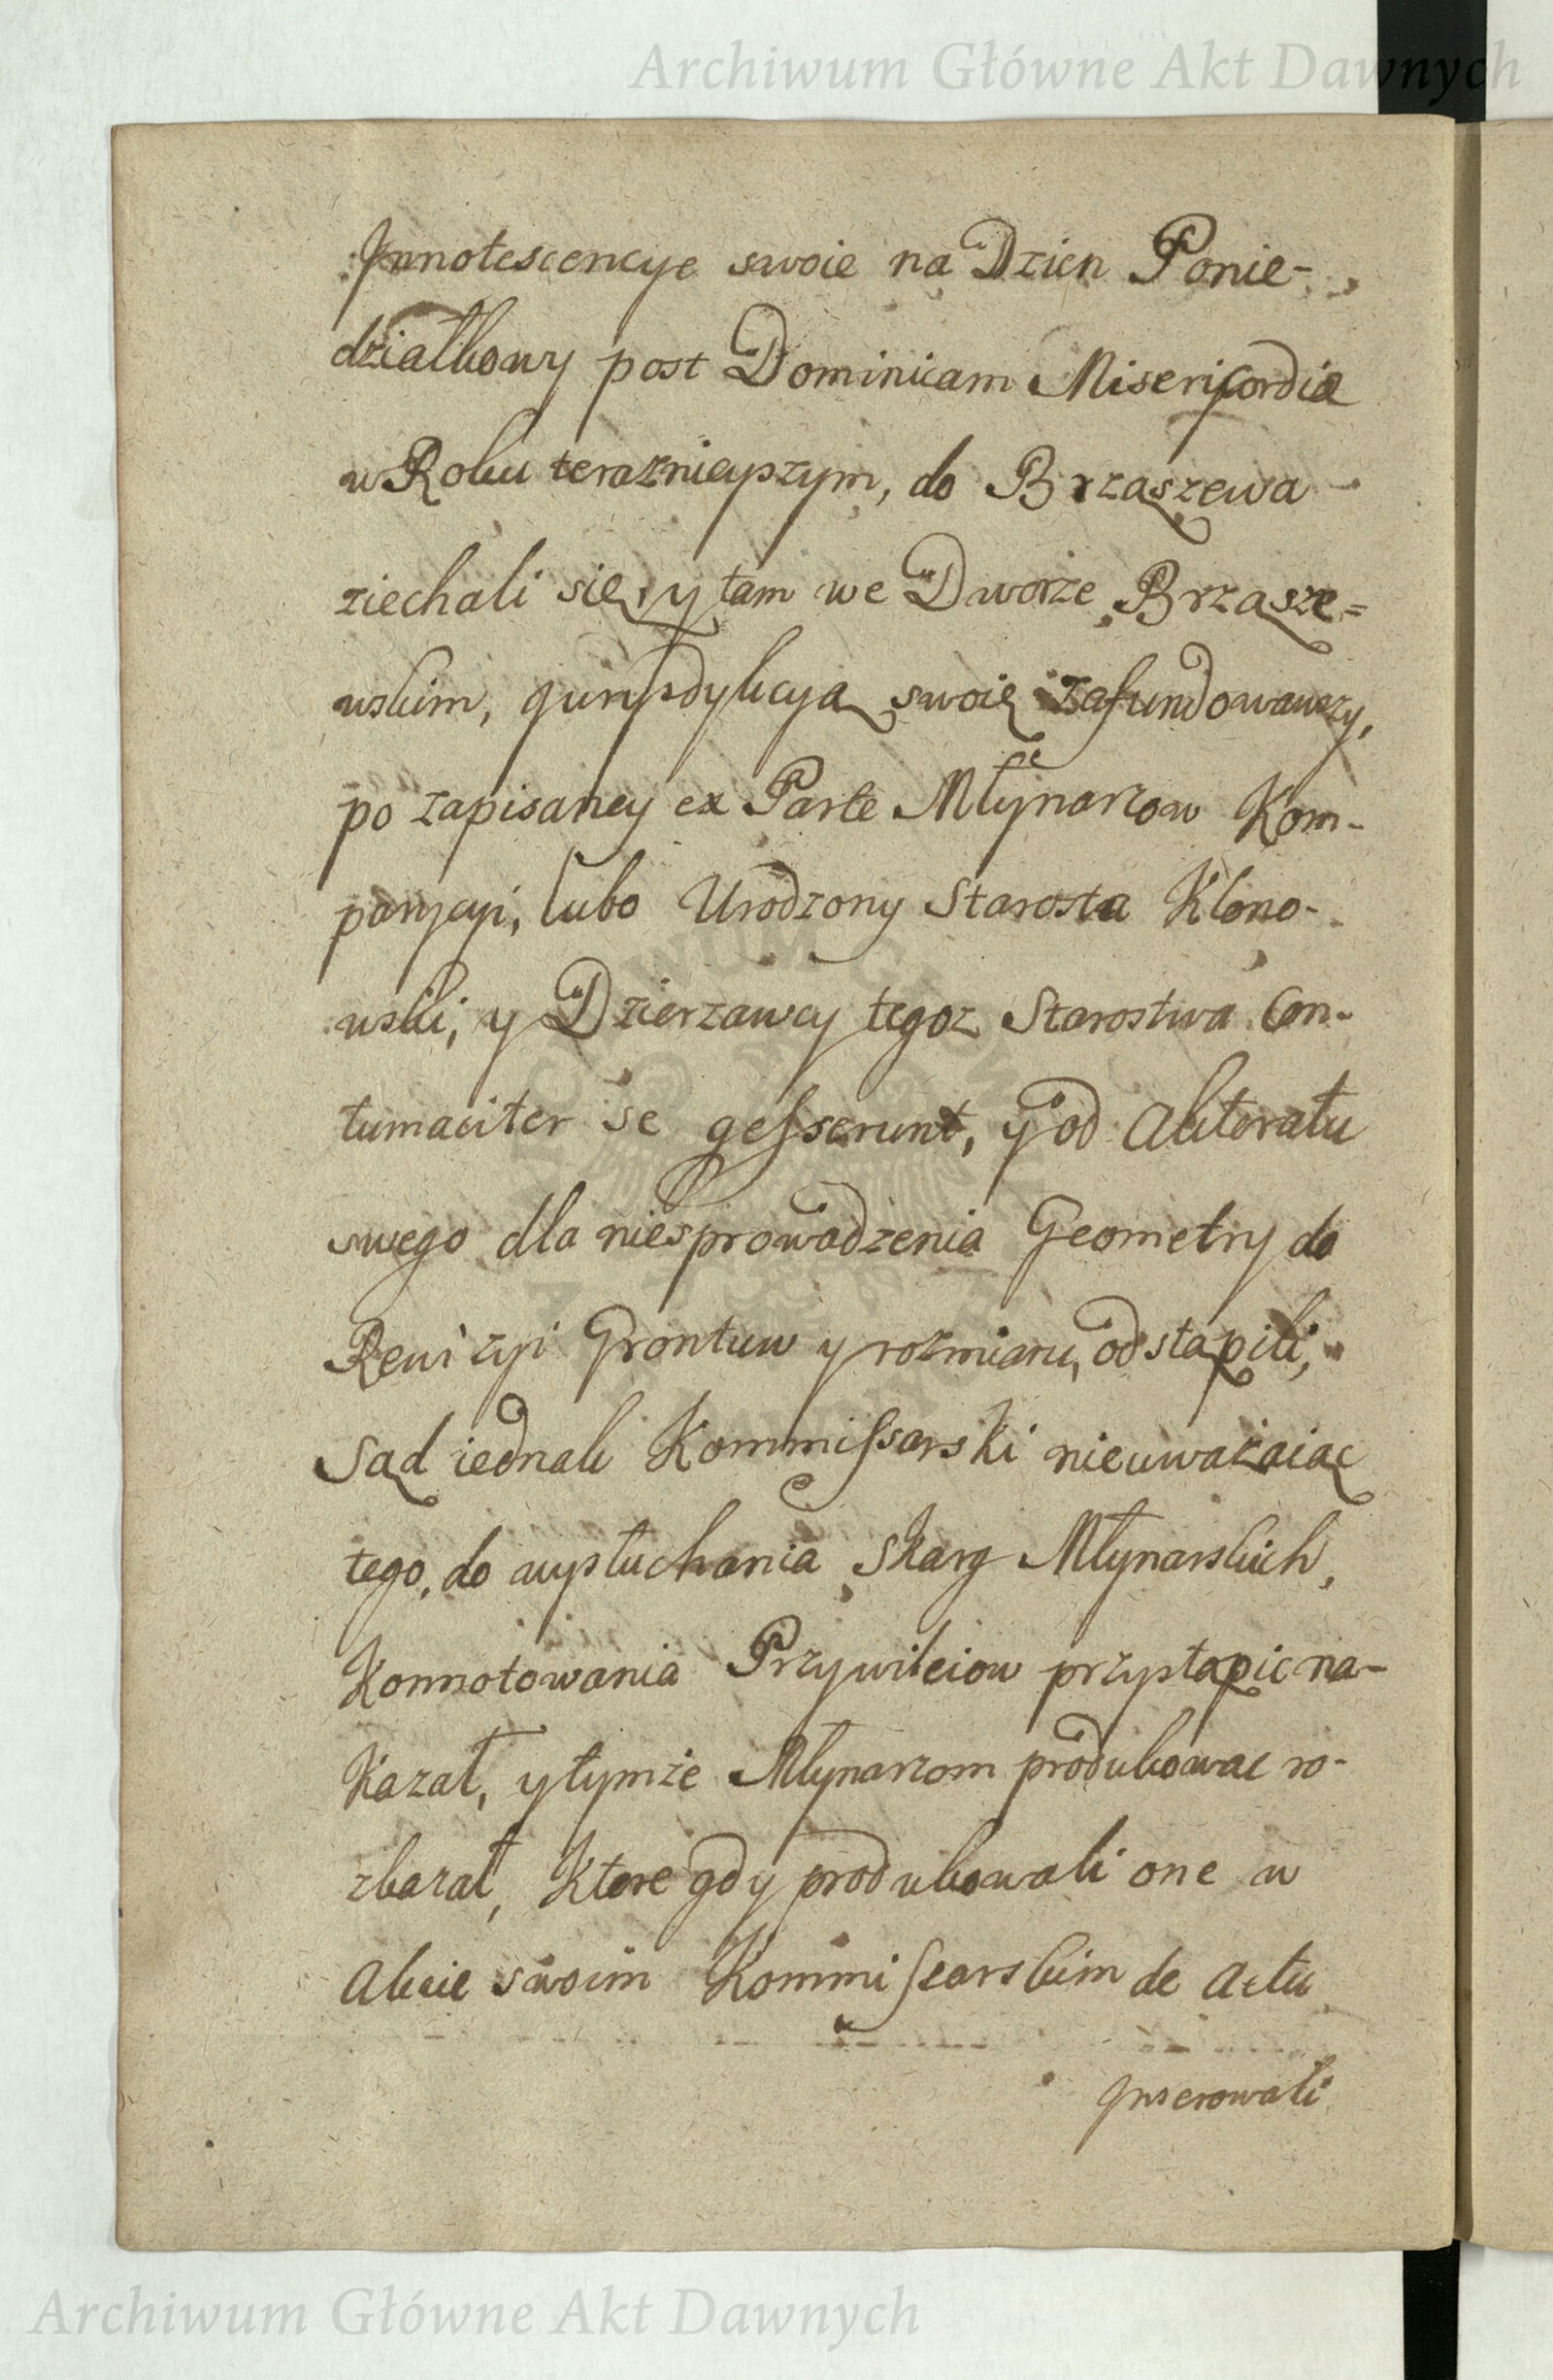 Archiwum Główne Akt Dawnych
Jnnotescencye swoie na Dzien Ponie-
działkowy post Dominicam Misericordiæ
w Roku teraznieyszym, do Brząszewa
ziechali się, y tam we Dworze Brząsze=
wskim, Juryzdykcyą swoię zafundowawszy,
po zapisaney ex Parte Młynarzow Kom-
parycyi, lubo Urodzony Starosta Klono-
wski, y Dzierzawcy tegoz Starostwa Con-
tumaciter se gesserunt, y od Aktoratu
swego dla niesprowadzenia Geometry do
Rewizyi Grontuw y rozmiaru, odstąpili,
Sąd iednak Kommissarski nieuwazaiąc
tego, do wysłuchania Skarg Młynarskich,
Konnotowania Przywileiow przystąpic na-
Kazał, y tymze Młynarzom produkowac ro-
zkazał, Ktore gdy produkowali one w
Akcie swoim Kommissarskim de Actu
Jnserowali
Archiwum Główne Akt Dawnych